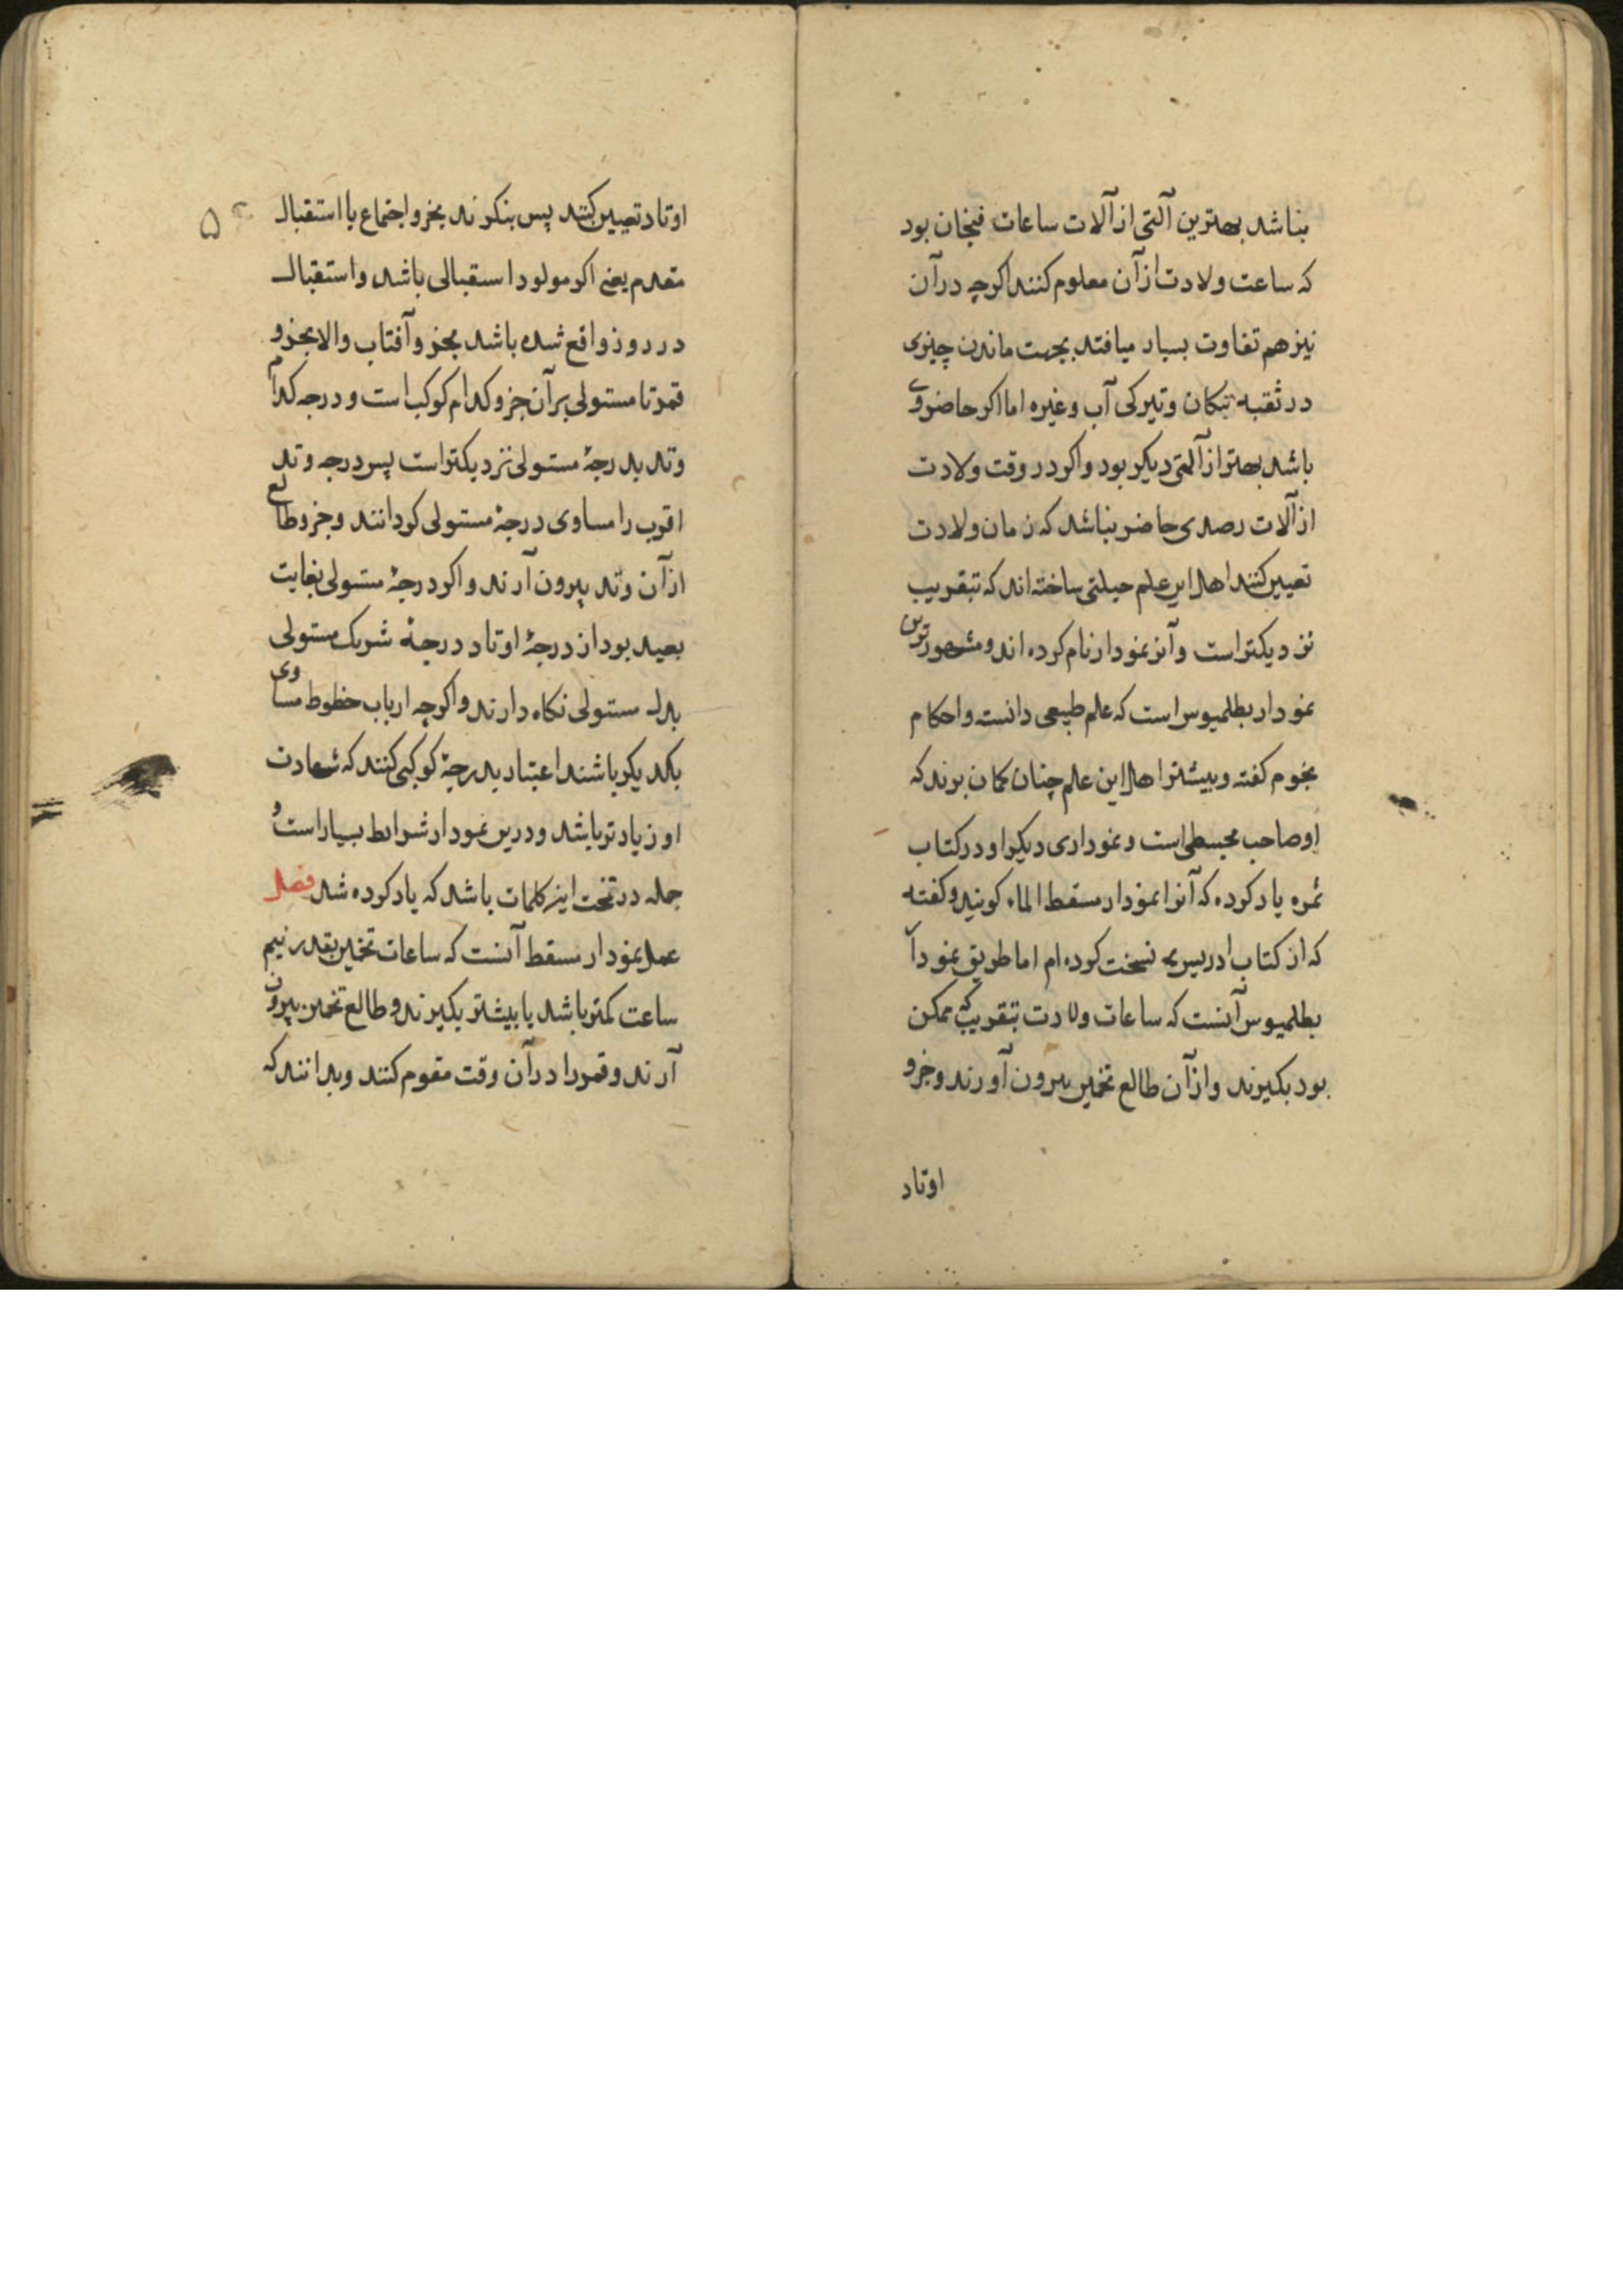 بناشد بهترین آلتی از آلات ساعات فنجان بود
که ساعت ولادت از آن معلوم کنند اکرچه در آن
نیز هم تفاوت بسیار میافتد بجهت ماندن چیزی
در ثقبه تنکان و تیرکی آب و غیره اما اکر حاضر وی
باشد بهتر از آلتی دیکر بود و اکر در وقت ولادت
از آلات رصدی حاضر بناشد که زمان ولادت
تعیین کنند اهل این علم حیلتی ساخته اند که تبقریب
نزدیکتر است و آنرا نمودار نام کرده اند و مشهورترین
نمودار بطلمیوس است که علم طبیعی دانسته و احکام
نجوم کفته و بیشتر اهل این علم چنان کمان برند که
او صاحب مجسطی است و نموداری دیکر او در کتاب
ثمره یاد کرده که آنرا نمودار مسقط الماء کویند و کفته
که از کتاب ادریس نسخت کرده ام اما طریق نمودار
بطلمیوس آنست که ساعات ولادت تبقریب که ممکن
بود بکیرند و از آن طالع تخمین بیرون آورند و جزو
اوتاد
۵
اوتاد تعیین کنند پس بنکرند بجزو اجتماع یا استقبال
مقدم یعنی اکر مولود استقبالی باشد و استقبال
در روز واقع شده باشد بجزو آفتاب والا بجزو
قمر تا مستولی بر آن جزو کدام کوکب است و درجه کدام
وتد بدرجهٔ مستولی نزدیکتر است پس درجه وتد
اقرب را مساوی درجهٔ مستولی کردانند و جزو طالع
از آن وتد بیرون آرند و اکر درجهٔ مستولی بغایت
بعید بود از درجهٔ اوتاد درجهٔ شریک مستولی
بدل مستولی نکاه دارند و اکرچه ارباب حظوظ مساوی
یکدیکر باشند اعتبار بدرجهٔ کوکبی کنند که شهادت
او زیادتر باشد و درین نمودار شرایط بسیار است و
جمله در تحت این کلمات باشد که یاد کرده شد فصل
عمل نمودار مسقط آنست که ساعات تخمین بقدر نیم
ساعت کمتر باشد یا بیشتر بکیرند و طالع تخمین بیرون
آرند و قمر را در آن وقت مقوم کنند و بدانند که